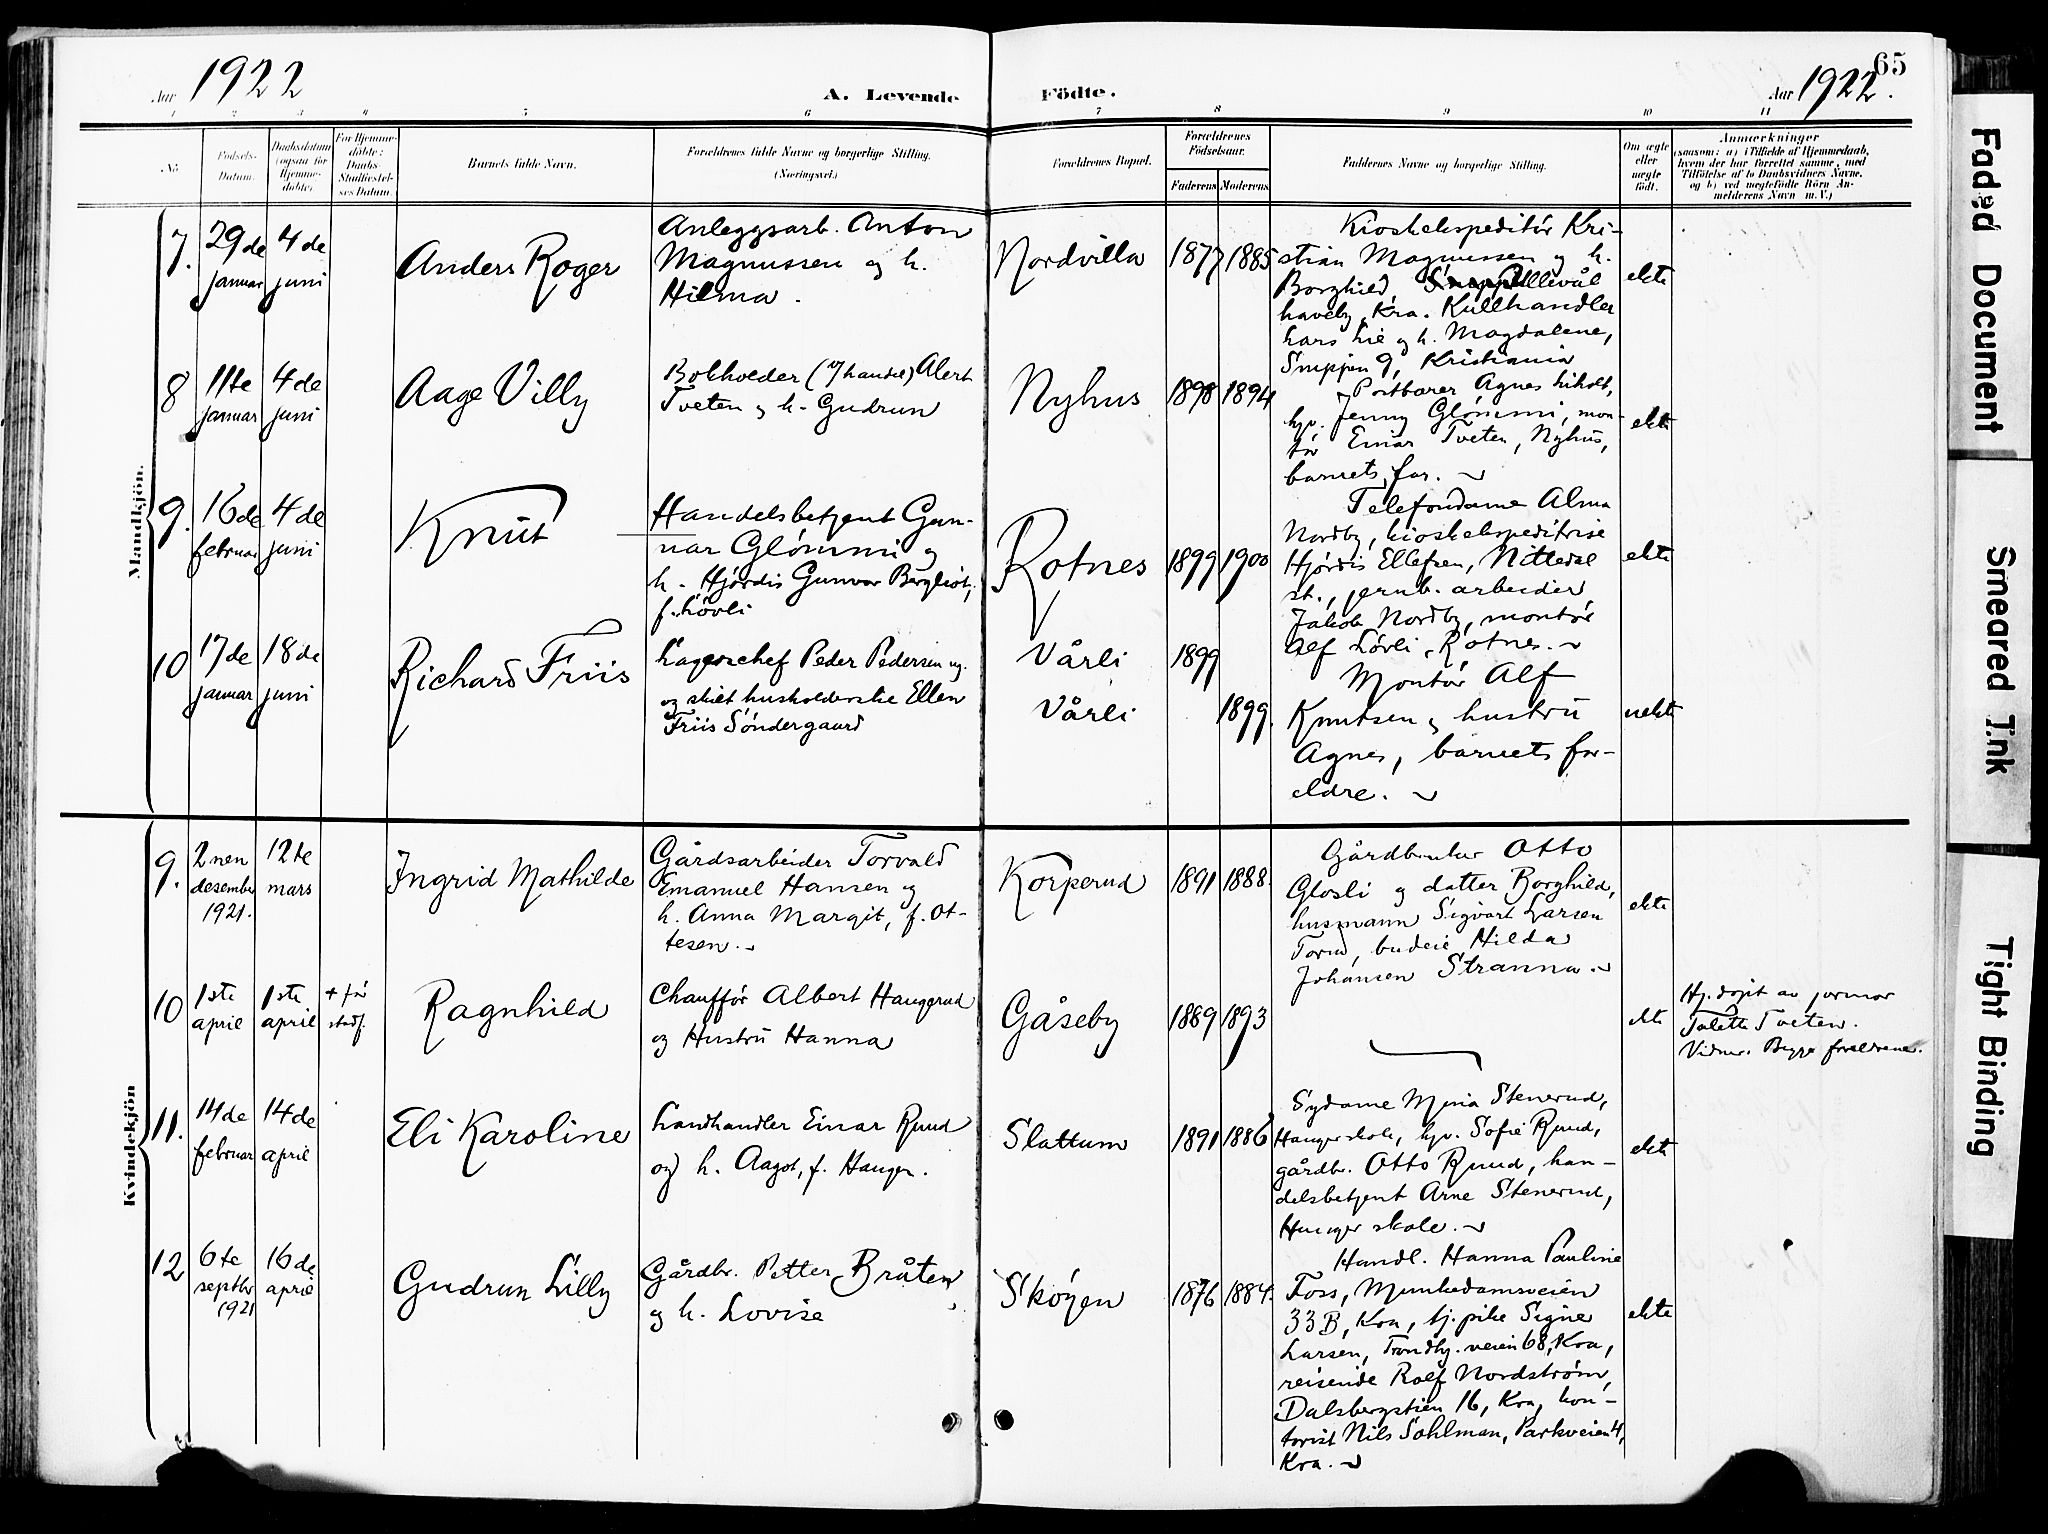 Aar 1922
A. Levende
Födte.
65
Aar 1922.
1 2 3 4 5 6 7 8 9 10 11
No.
Födsels-
Datum.
Daabsdatum
(ogsaa for
Hjemme-
döbte).
For Hjemme-
döbte:
Daabs-
Stadfæstel-
ses Datum.
Barnets fulde Navn.
Forældrenes fulde Navne og borgerlige Stilling.
(Næringsvei.)
Forældrenes Bopæl.
Forældrenes
Födselsaar.
Faderens
Moderens
Faddernes Navne og borgerlige Stilling.
Om ægte
eller
uægte
født.
Anmærkninger
(saasom: a) i Tilfælde af Hjemmedaab,
hvem der har forrettet samme, med
Tilföielse af to Daabsvidners Navne,
og b) ved uægtefödte Börn An-
melderens Navn m. V.)
Mandkjön.
7.
29de
januar
4de
juni
Anders Roger
Anleggsarb. Anton
Magnussen og h.
Hilma.
Nordvilla
1877
1885
Kioskekspeditör Kri-
stian Magnussen og h.
Borghild, Ullevål
haveby, Kra. Kullhandler
Lars Lie og h. Magdalene,
9, Kristiania
ekte
8
11te
januar
4de
juni
Aage Villy
Bokholder (i/handel) Alert
Tveten og h. Gudrun
Nyhus
1898
1894
Postbærer Agnes
hpv. Jenny Glömmi, mon-
tör Einar Tveten, Nyhus,
barnets far.
ekte
9.
16de
februar
4de
juni
Knut
Handelsbetjent Gun-
nar Glömmi og
h. Hjördis Gunvor Bergliot,
f. Lövli
Rotnes
1899
1900
Telefondame Alma
Nordby, kioskekspeditrise
Hjördis Ellefsen, Nittedal
st., jernb. arbeider
Jakob Nordby, montör
Alf Lövli, Rotnes.
ekte
10
17de
januar
18de
juni
Richard Friis
Lagerchef Peder Pedersen ug.
og skilt husholderske Ellen
Friis Söndergaard
Vårli
Vårli
1899
1899.
Montör Alf
Knutsen og hustru
Agnes, barnets for-
eldre.
uekte
Kvindekjön
9.
2nen
desember
1921.
12te
mars
Ingrid Mathilde
Gårdsarbeider Torvald
Emanuel Hansen og
h. Anna Margit, f. Ot-
tesen.
Korperud
1891
1888.
Gårdbruker Otto
Glosli og datter Borghild,
husmann Sigvart Larsen
Torud, budeie Hilda
Johansen Stranna.
ekte
10
1ste
april
1ste
april
+ før
stadf.
Ragnhild
Chaufför Albert Haugerud
og Hustru Hanna
Gåseby
1889
1893
ekte
Hj. döpt av jormor
Talette Tveten.
Vidner. Begge foreldrene.
11.
14de
februar
14de
april
Eli Karoline
Landhandler Einar Ruud
og h. Aagot, f. Haugen.
Slattum
1891
1886
Sydame Mina Stenerud,
Hauger skole, hpv. Sofie Ruud,
gårdbr. Otto Ruud, han-
delsbetjent Arne Stenerud,
Hauger skole.
ekte
12
6te
septbr
1921
16de
april
Gudrun Lilly
Gårdbr. Petter Bråten
og h. Lovise
Sköyen
1876
1884.
Handl. Hanna Pauline
Foss, Munkedamsveien
33B, Kra, tj.pike Signe
Larsen, Trondhj.veien 68, Kra,
reisende Rolf Nordström,
Dalsbergstien 16, Kra, kon-
torist Nils Sohlman, Parkveien 4,
Kra.
ekte
Faded Document
Smeared Ink
Tight Binding